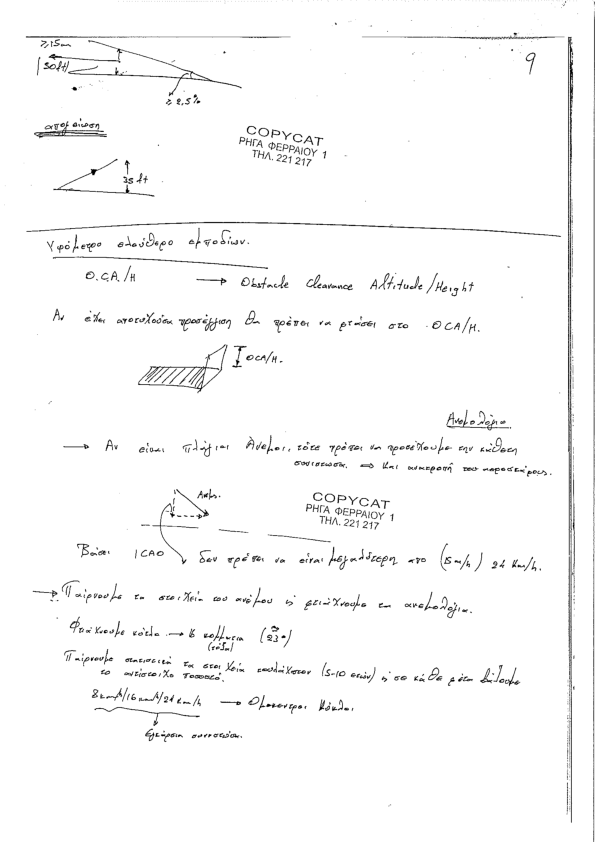 9
≥15m
(50ft)
≥ 2,5%
απογείωση
COPYCAT
ΡΗΓΑ ΦΕΡΡΑΙΟΥ 1
ΤΗΛ. 221 217
35 ft
Υψόμετρο ελεύθερο εμποδίων.
O.C.A./H → Obstacle Clearance Altitude/Height
Αν έχει αποτυχούσα προσέγγιση θα πρέπει να φτάσει στο OCA/H.
OCA/H.
Ανεμολόγια
→ Αν είναι πλάγιοι Άνεμοι, τότε πρέπει να προσέχουμε την κάθετη
συνιστώσα. ⇒ και ανατροπή του αεροσκάφους.
Ανεμ.
COPYCAT
ΡΗΓΑ ΦΕΡΡΑΙΟΥ 1
ΤΗΛ. 221 217
Βάσει ICAO δεν πρέπει να είναι μεγαλύτερη από (15m/h) 24 Km/h.
→ Παίρνουμε τα στοιχεία του ανέμου και φτιάχνουμε τα ανεμολόγια.
Φτιάχνουμε κύκλο → 16 κομμάτια (≈23°)
(τόξα)
Παίρνουμε στατιστικά τα στοιχεία τουλάχιστον (5-10 ετών) και σε κάθε φέτα βάζουμε
το αντίστοιχο ποσοστό.
8 km/h/16 km/h/24 km/h → Ομόκεντροι κύκλοι
Εγκάρσια συνιστώσα.